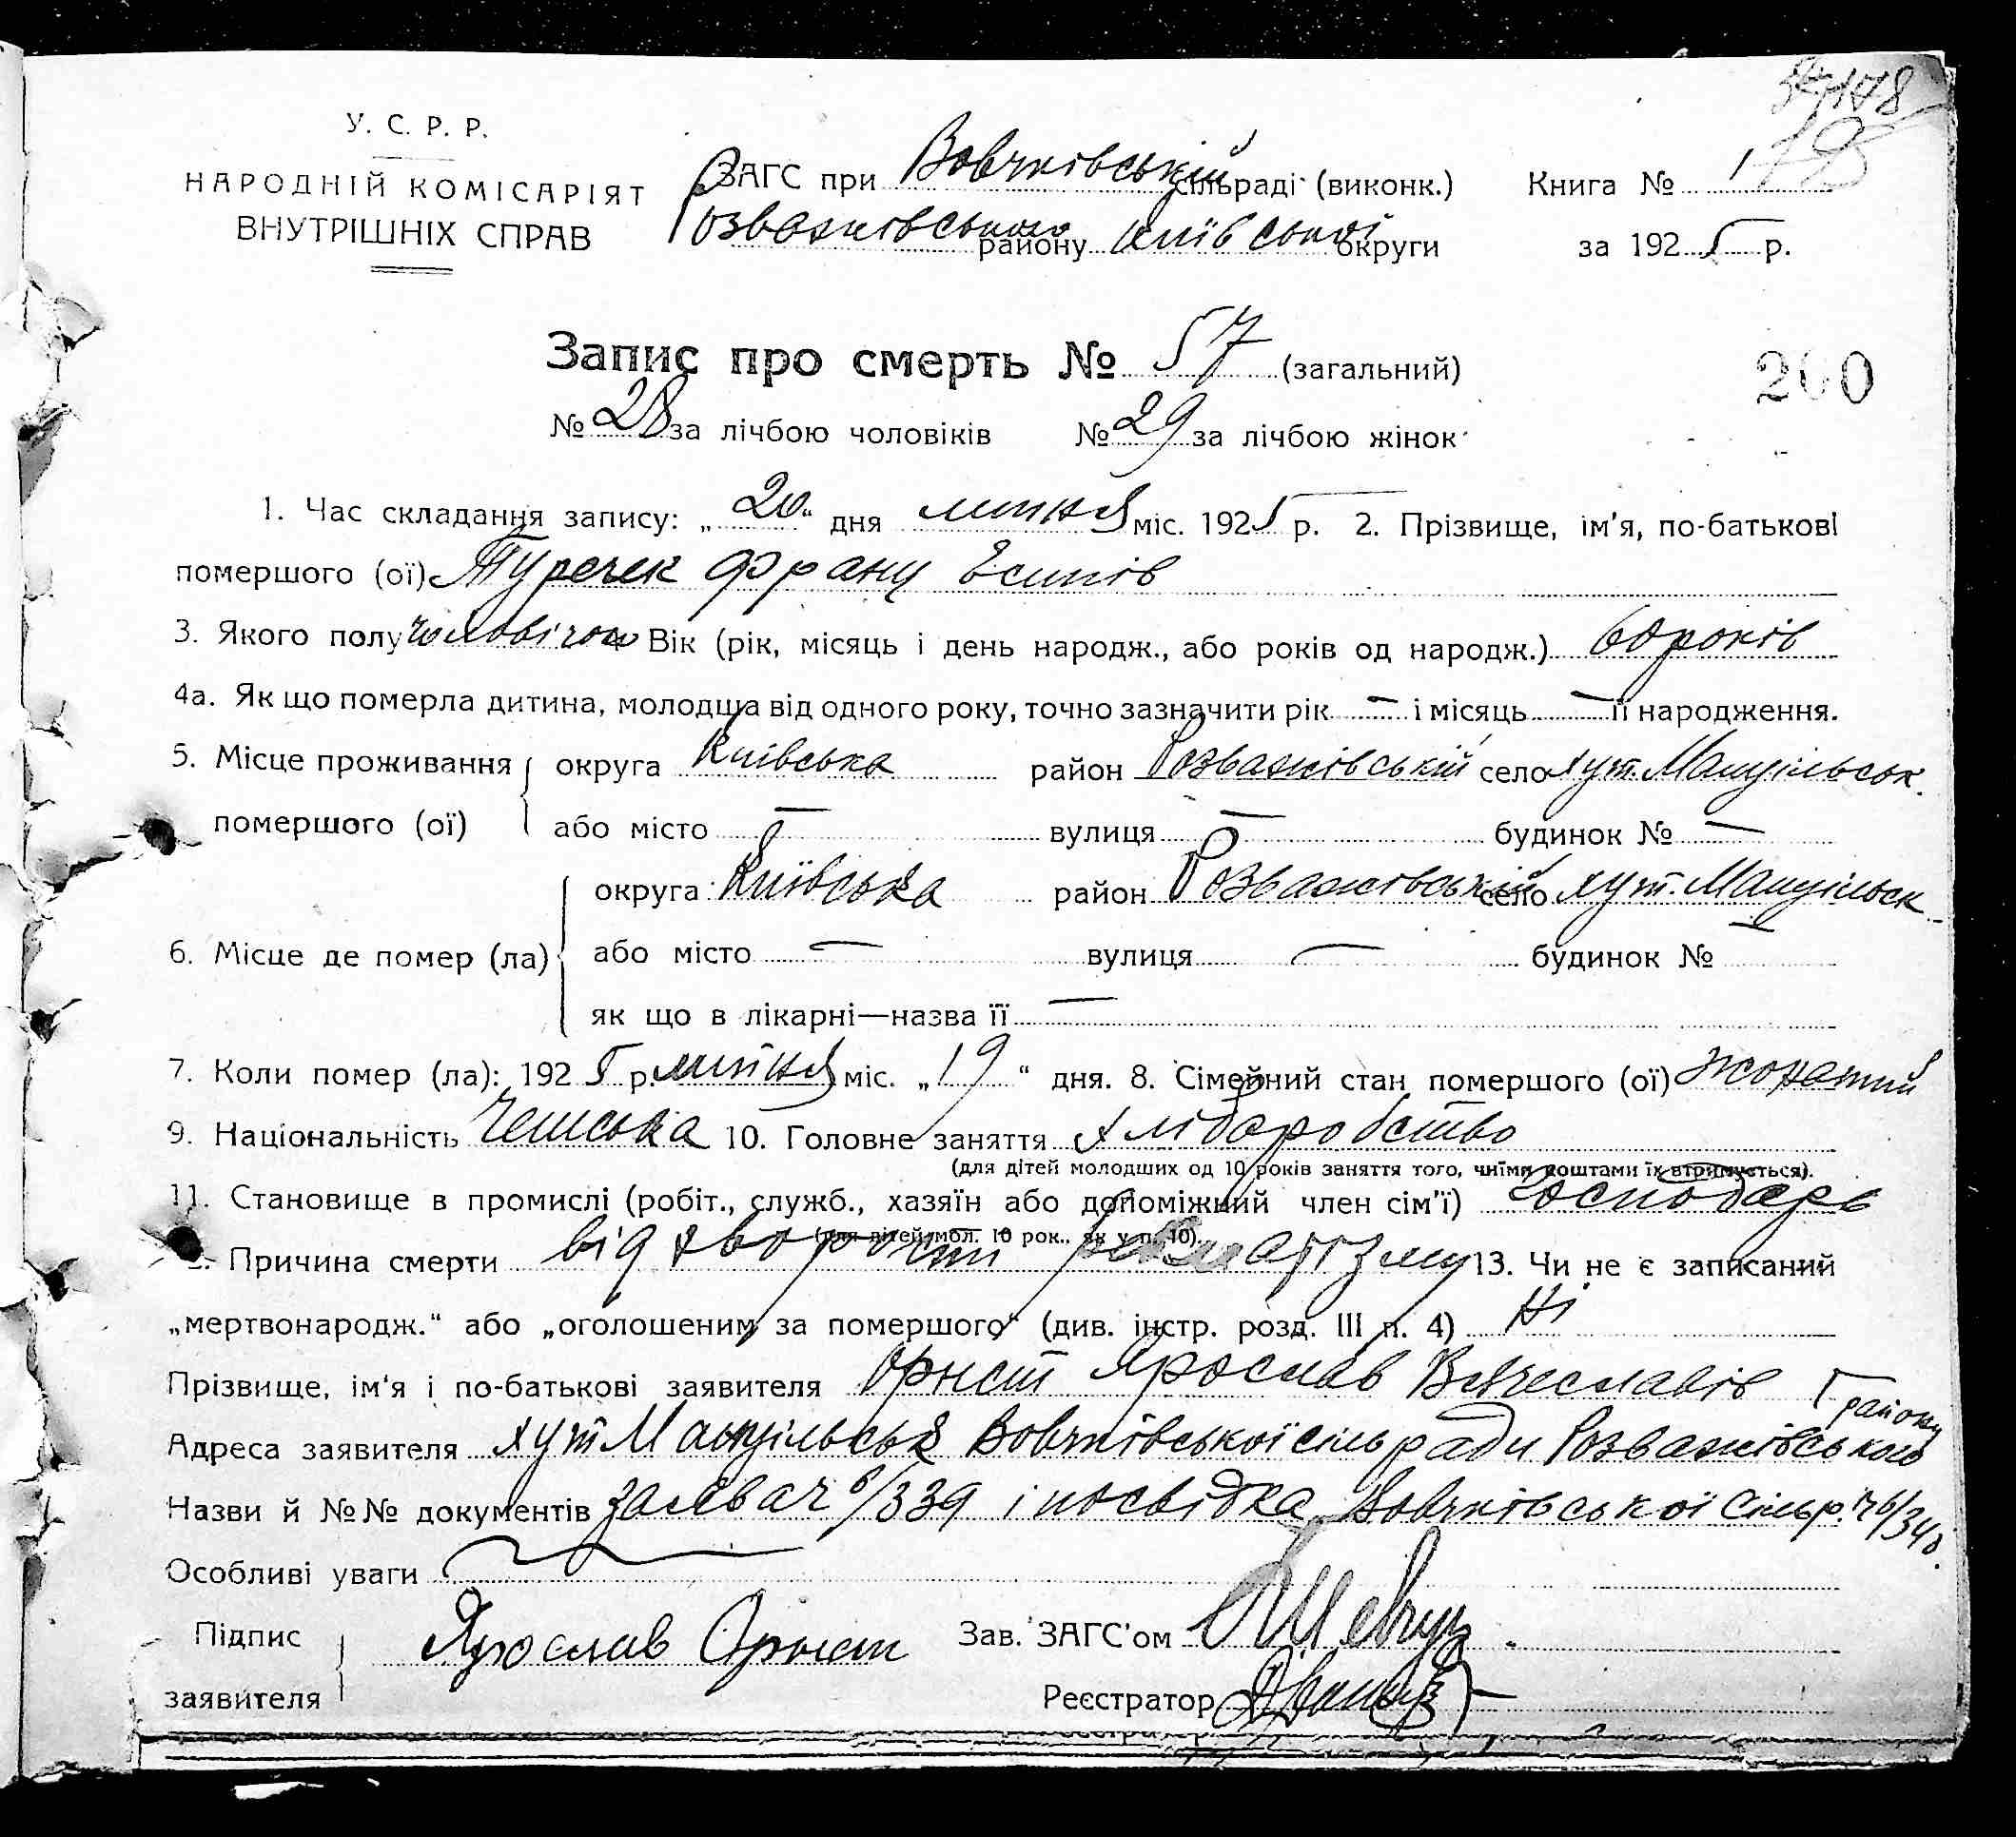 У. С. Р. Р.
НАРОДНІЙ КОМІСАРІЯТ
ВНУТРІШНІХ СПРАВ
ЗАГС при Вовчківській сільраді (виконк.)
Розважівського району Київської округи
Книга № 1
за 1925 р.
Запис про смерть № 57 (загальний)
200
№ 28 за лічбою чоловіків № 29 за лічбою жінок
1. Час складання запису: „20“ дня липня міс. 1925 р. 2. Прізвище, ім'я, по-батькові
помершого (ої) Туречек Франц Есипів
3. Якого полу чоловічого Вік (рік, місяць і день народж., або років од народж.) 60 років
4а. Як що померла дитина, молодша від одного року, точно зазначити рік — і місяць — її народження.
5. Місце проживання округа Київська район Розважівській село хут. Мацуільськ.
помершого (ої) або місто — вулиця — будинок № —
округа Київська район Розважівській село хут. Мацуільськ
6. Місце де помер (ла) або місто — вулиця — будинок № —
як що в лікарні—назва її —
7. Коли помер (ла): 1925 р. липня міс. „19“ дня. 8. Сімейний стан помершого (ої) жонатий
9. Національність Чешська 10. Головне заняття хліборобство
(для дітей молодших од 10 років заняття того, чиїми коштами їх втримується).
11. Становище в промислі (робіт., служб., хазяїн або допоміжний член сім'ї) господарь
(для дітей мол. 10 рок., як у п. 10).
Причина смерти від хвороти ревматізму 13. Чи не є записаний
„мертвонародж.“ або „оголошеним за помершого“ (див. інстр. розд. III п. 4) Ні
Прізвище, ім'я і по-батькові заявителя Орнст Ярослав Вячеславів
району
Адреса заявителя хут Мацуільськ Вовчківської сільради Розважівського
Назви й №№ документів заява ч 339 і посвідка Вовчківської Сільр. ч 6/340.
Особливі уваги
Підпис заявителя Ярослав Орнст Зав. ЗАГС'ом Шевчук
Реєстратор